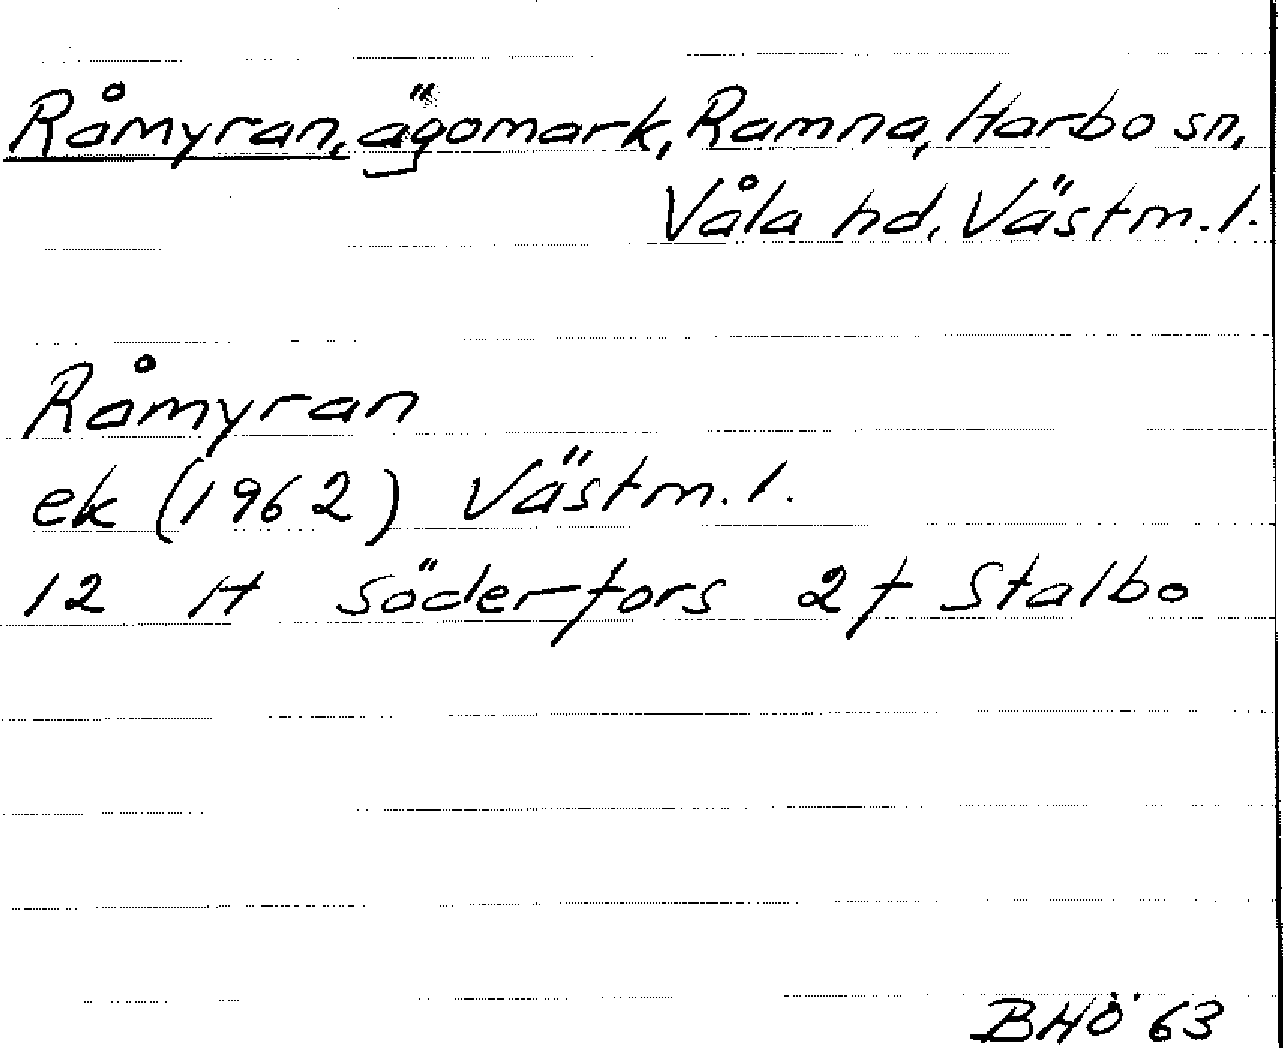 Råmyran, ägomark, Ramna, Harbo sn,
Våla hd, Västm. l.
Råmyran
ek (1962) Västm. l.
12 H Söderfors 2f Stalbo
BHÖ 63